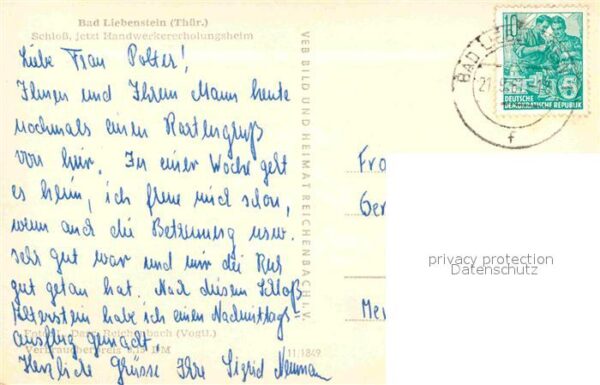 Bad Liebenstein (Thür.)
Schloß, jetzt Handwerkererholungsheim
Liebe Frau Polter!
Ihnen und Ihrem Mann heute
nochmals einen Kartengruß
von hier. In einer Woche geht
es heim, ich freue mich schon,
wenn auch die Betreuung usw.
sehr gut war und mir die Kur
gut getan hat. Nach diesem Schloß
Altenstein habe ich einen Nachmittags
ausflug gemacht.
Reichenbach (Vogtl.)
Verbraucherpreis 0,15 DM
Herzliche Grüsse Ihre Sigrid Neumann
VEB BILD UND HEIMAT REICHENBACH I. V.
11/1849
10
5
DEUTSCHE
DEMOKRATISCHE REPUBLIK
BAD
f
Fra
Ger
Me
privacy protection
Datenschutz